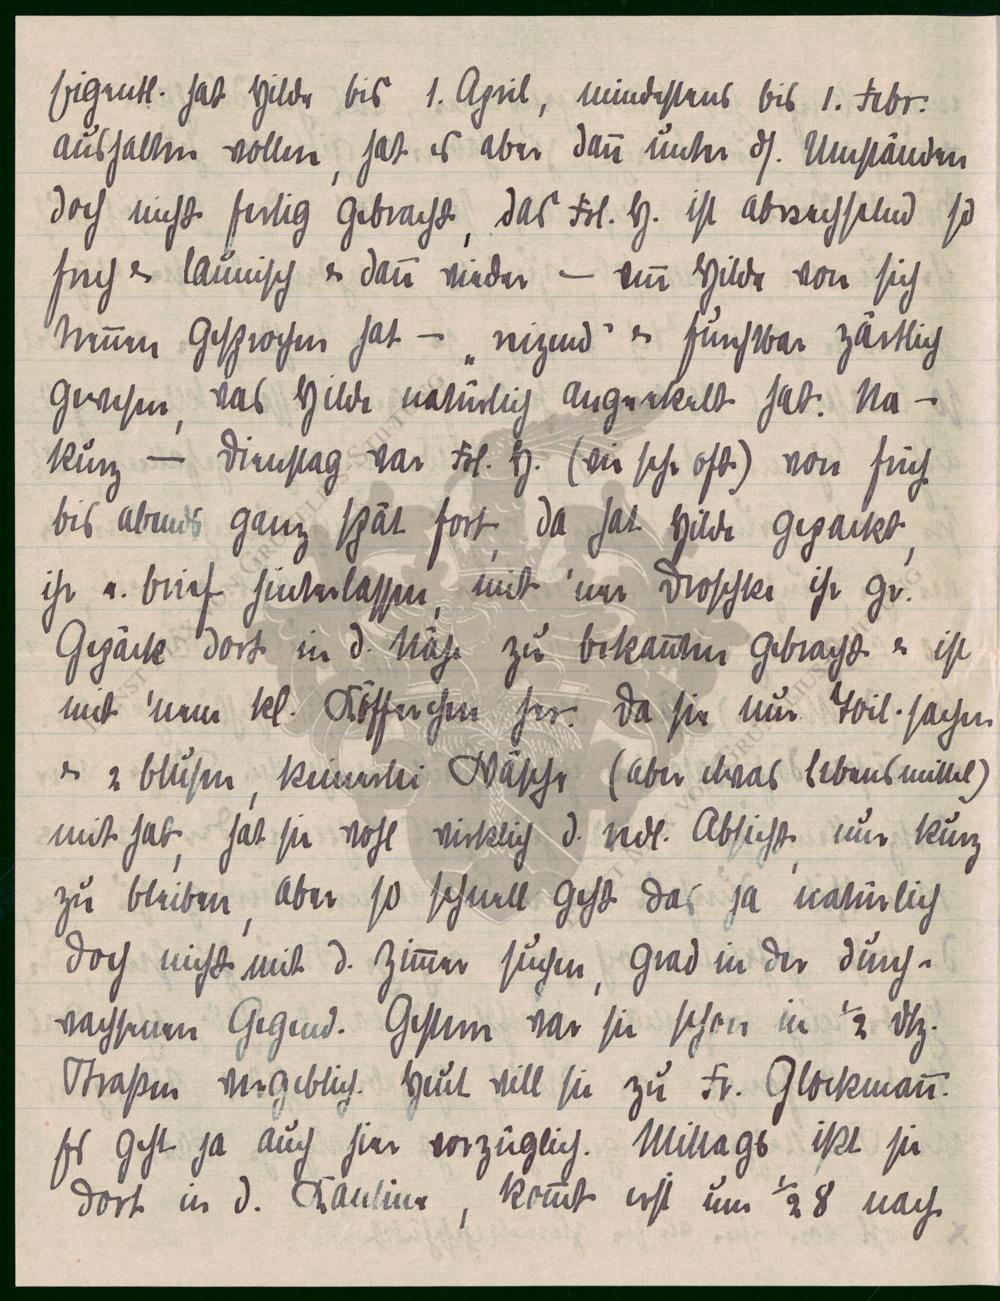 Eigentl. hat Hilde bis 1. April, mindestens bis 1. Febr.
aushalten wollen, hat es aber dan̄ unter ds. Umständen
doch nicht fertig gebracht, das Frl. H. ist abwechselnd so
frech & launisch & dan̄ wieder — wen̄ Hilde von sich
Tren̄en gesprochen hat — „reizend" & furchtbar zärtlich
gewesen, was Hilde natürlich angeekelt hat. Na —
kurz — Dienstag war Frl. H. (wie sehr oft) von früh
bis abends ganz spät fort, da hat Hilde gepackt,
ihr e. Brief hinterlassen, mit 'ner Droschke ihr gr.
Gepäck dort in d. Nähe zu Bekan̄ten gebracht & ist
mit 'nem kl. Köfferchen her. Da sie nur Toil.sachen
& 2 Blusen, keinerlei Wäsche (aber etwas Lebensmittel)
mit hat, hat sie wohl wirklich d. redl. Absicht, nur kurz
zu bleiben, aber so schnell geht das ja natürlich
doch nicht mit d. Zim̄er suchen, grad in der
Gegend. Gestern war sie schon in ½ Dtz.
Straßen vergeblich. Heut will sie zu Fr. Glockman̄.
Es geht ja auch hier vorzüglich. Mittags ißt sie
dort in d. Kantine, kom̄t erst um ½ 8 nach
FÜRST MAX VON GRUBELIUS STIFTUNG